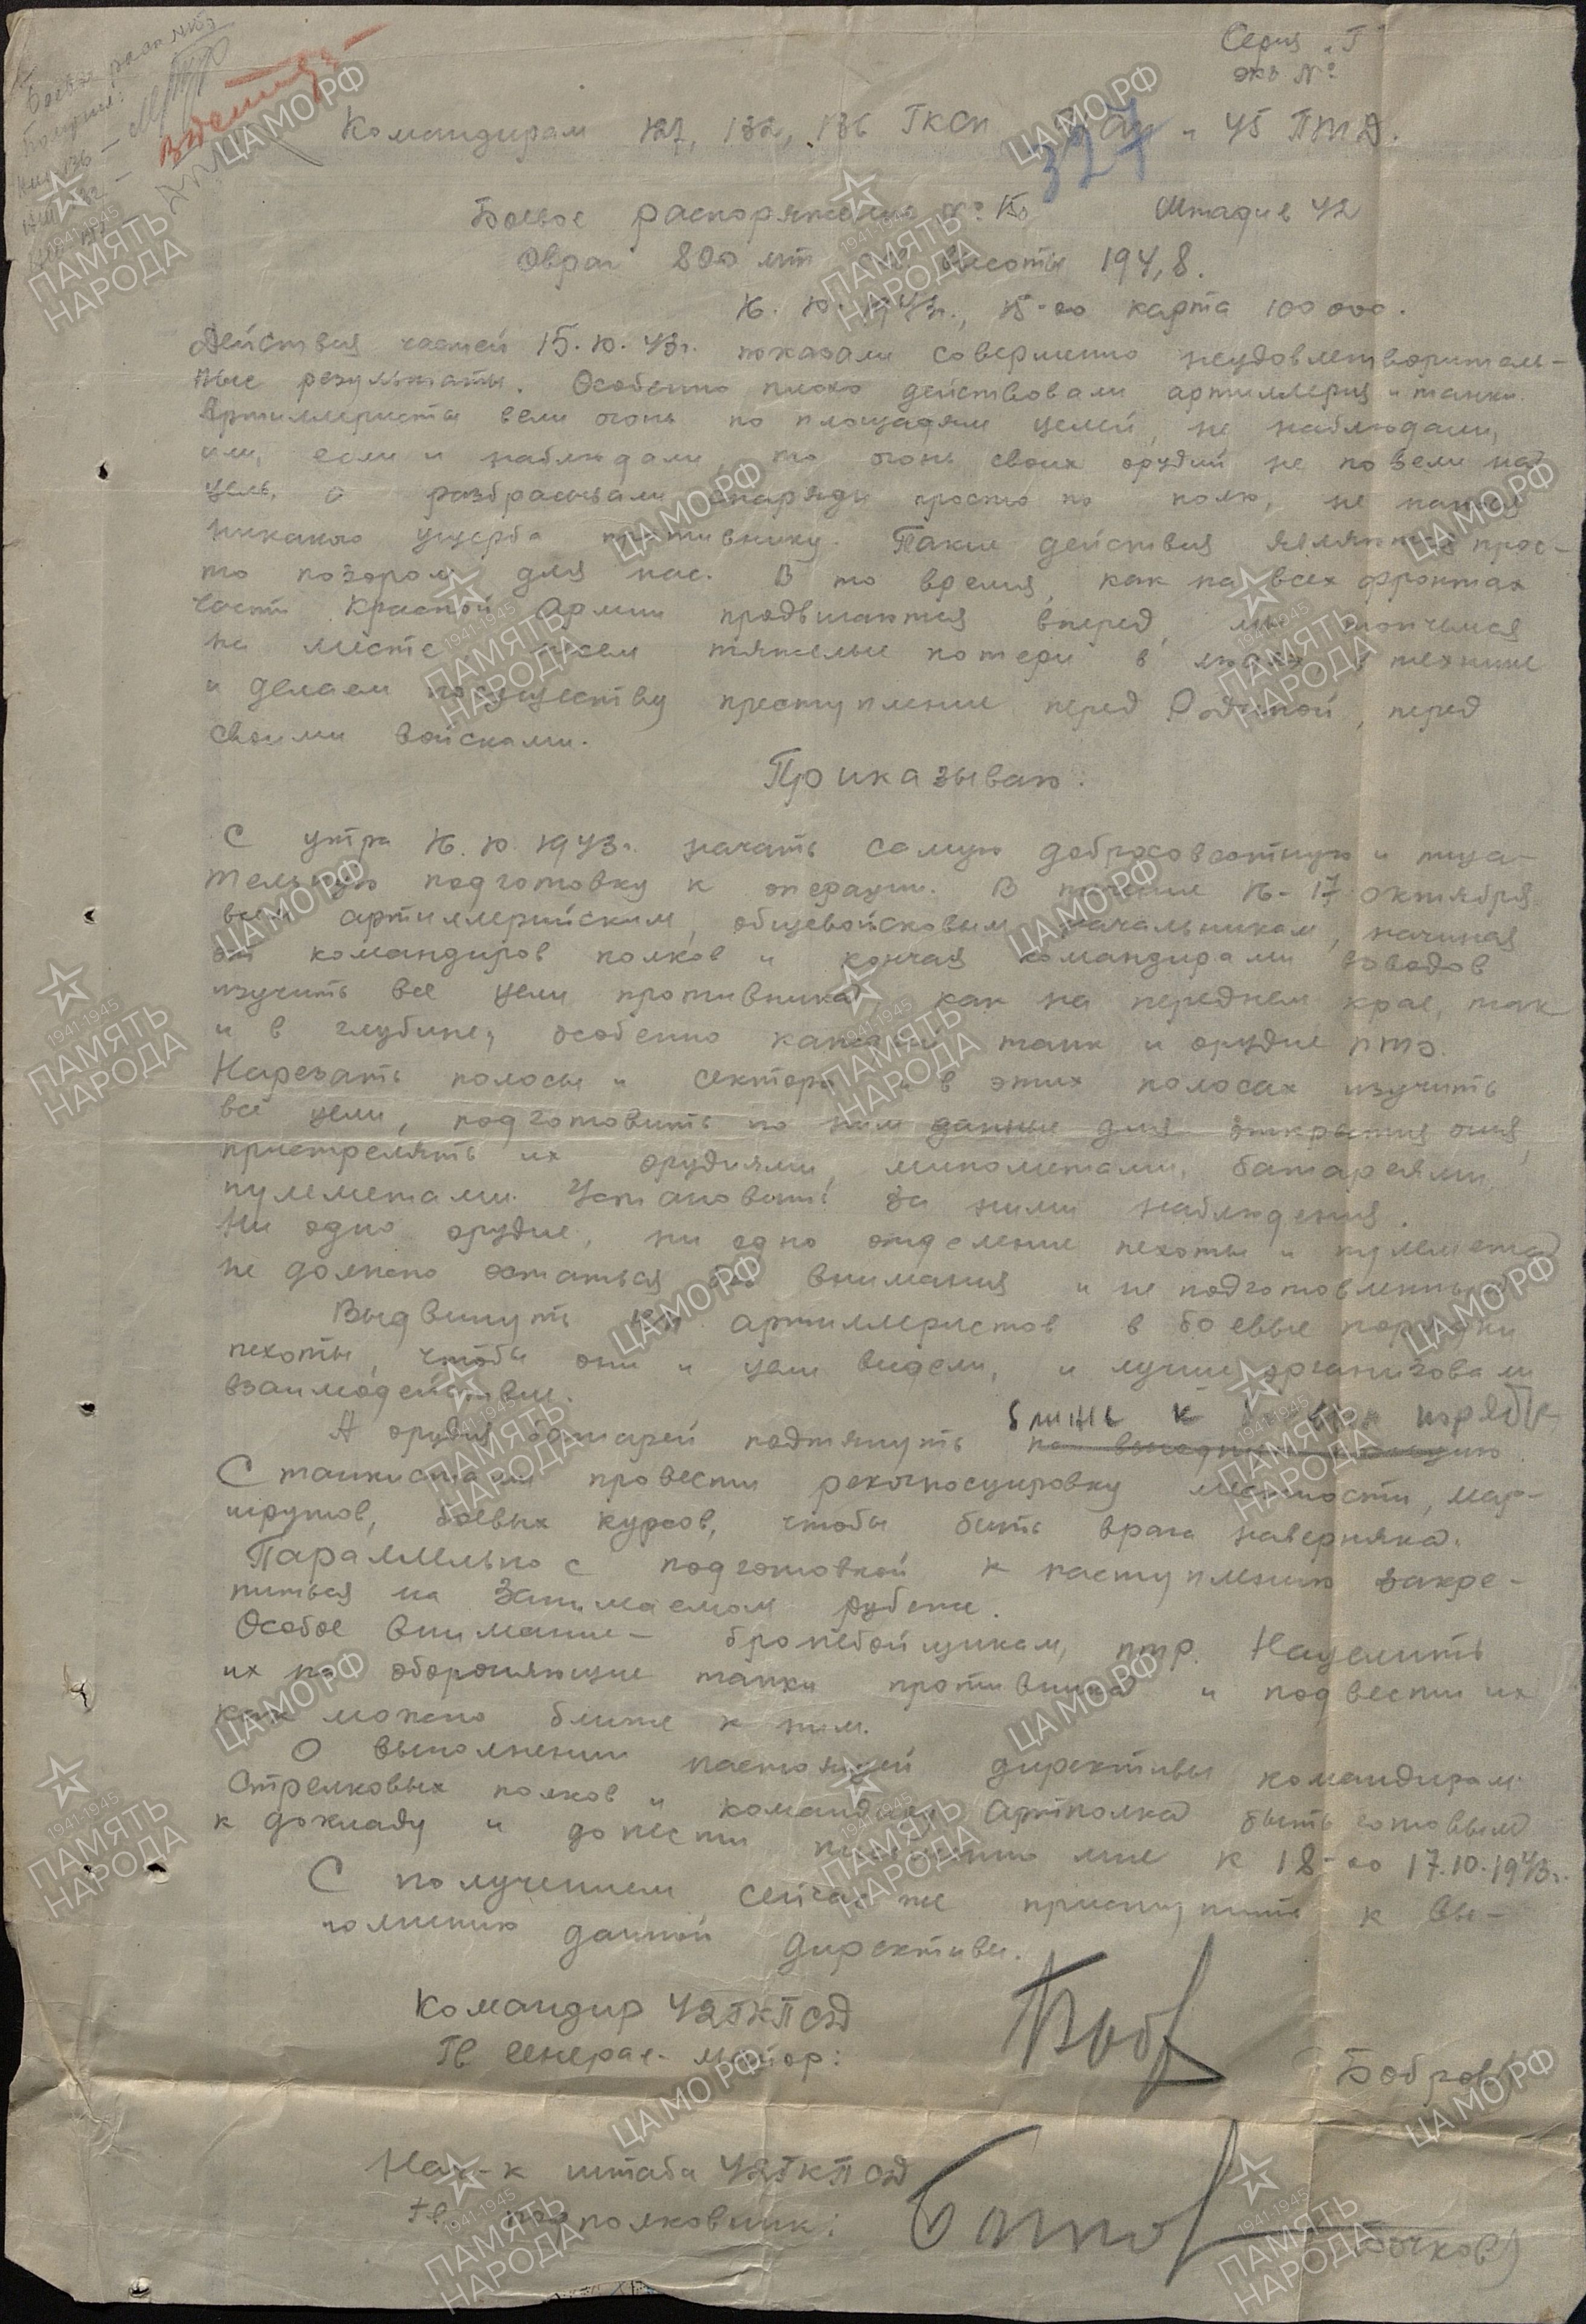 Серия "Г"
экз №
Боевое расп №
Получил:
в дело
327
Командирам 127, 132, 136 ГКСП и 45 ПТД.
Боевое распоряжение № Штадив 42
Овраг 800 мт высоты 194,8.
16.10.1943г., карта 100 000.
Действия частей 15.10.43г. показали совершенно неудовлетворитель-
ные результаты. Особенно плохо действовали артиллерия и танки.
Артиллеристы вели огонь по площадям целей, не наблюдали,
или, если и наблюдали, то огонь своих орудий не повели на
цель, а разбрасывали снаряды просто по полю, не нанося
никакого ущерба противнику. Такие действия являются прос-
то позором для нас. В то время, как на всех фронтах
части Красной Армии продвигаются вперед, мы топчемся
на месте, несем тяжелые потери в людях и технике
и делаем по существу преступление перед Родиной, перед
своими войсками.
Приказываю:
С утра 16.10.1943г. начать самую добросовестную и тща-
тельную подготовку к операции. В течение 16-17 октября
всем артиллерийским, общевойсковым начальникам, начиная
от командиров полков и кончая командирами взводов
изучить все цели противника как на переднем крае, так
и в глубине, особенно каждый танк и орудие ПТО.
Нарезать полосы и сектора и в этих полосах изучить
все цели, подготовить по ним данные для открытия огня,
пристрелять их орудиями, минометами, батареями,
пулеметами. Установить за ними наблюдения.
Ни одно орудие, ни одно отделение пехоты и пулемета
не должно остаться без внимания и не подготовленным
Выдвинуть НП артиллеристов в боевые порядки
пехоты, чтобы они и цели видели, и лучше организовали
взаимодействие.
ближе к порядк
А орудия батарей подтянуть
С танкистами провести рекогносцировку местности, мар-
шрутов, боевых курсов, чтобы бить врага наверняка.
Параллельно с подготовкой к наступлению закре-
питься на занимаемом рубеже.
Особое внимание - бронебойщикам, птр. Нацелить
их на обороняющие танки противника и подвести их
как можно ближе к ним.
О выполнении настоящей директивы командирам
стрелковых полков и командиру Артполка быть готовым
к докладу и донести письменно мне к 18-00 17.10.1943г.
С получением, сейчас же приступить к вы-
полнению данной директивы.
Командир 42ГКПСД
Гв генерал-майор: Бобров
Нач-к штаба 42ГКПСД
Гв подполковник: (Бочков)
ПАМЯТЬ НАРОДА
1941-1945
ЦА МО РФ